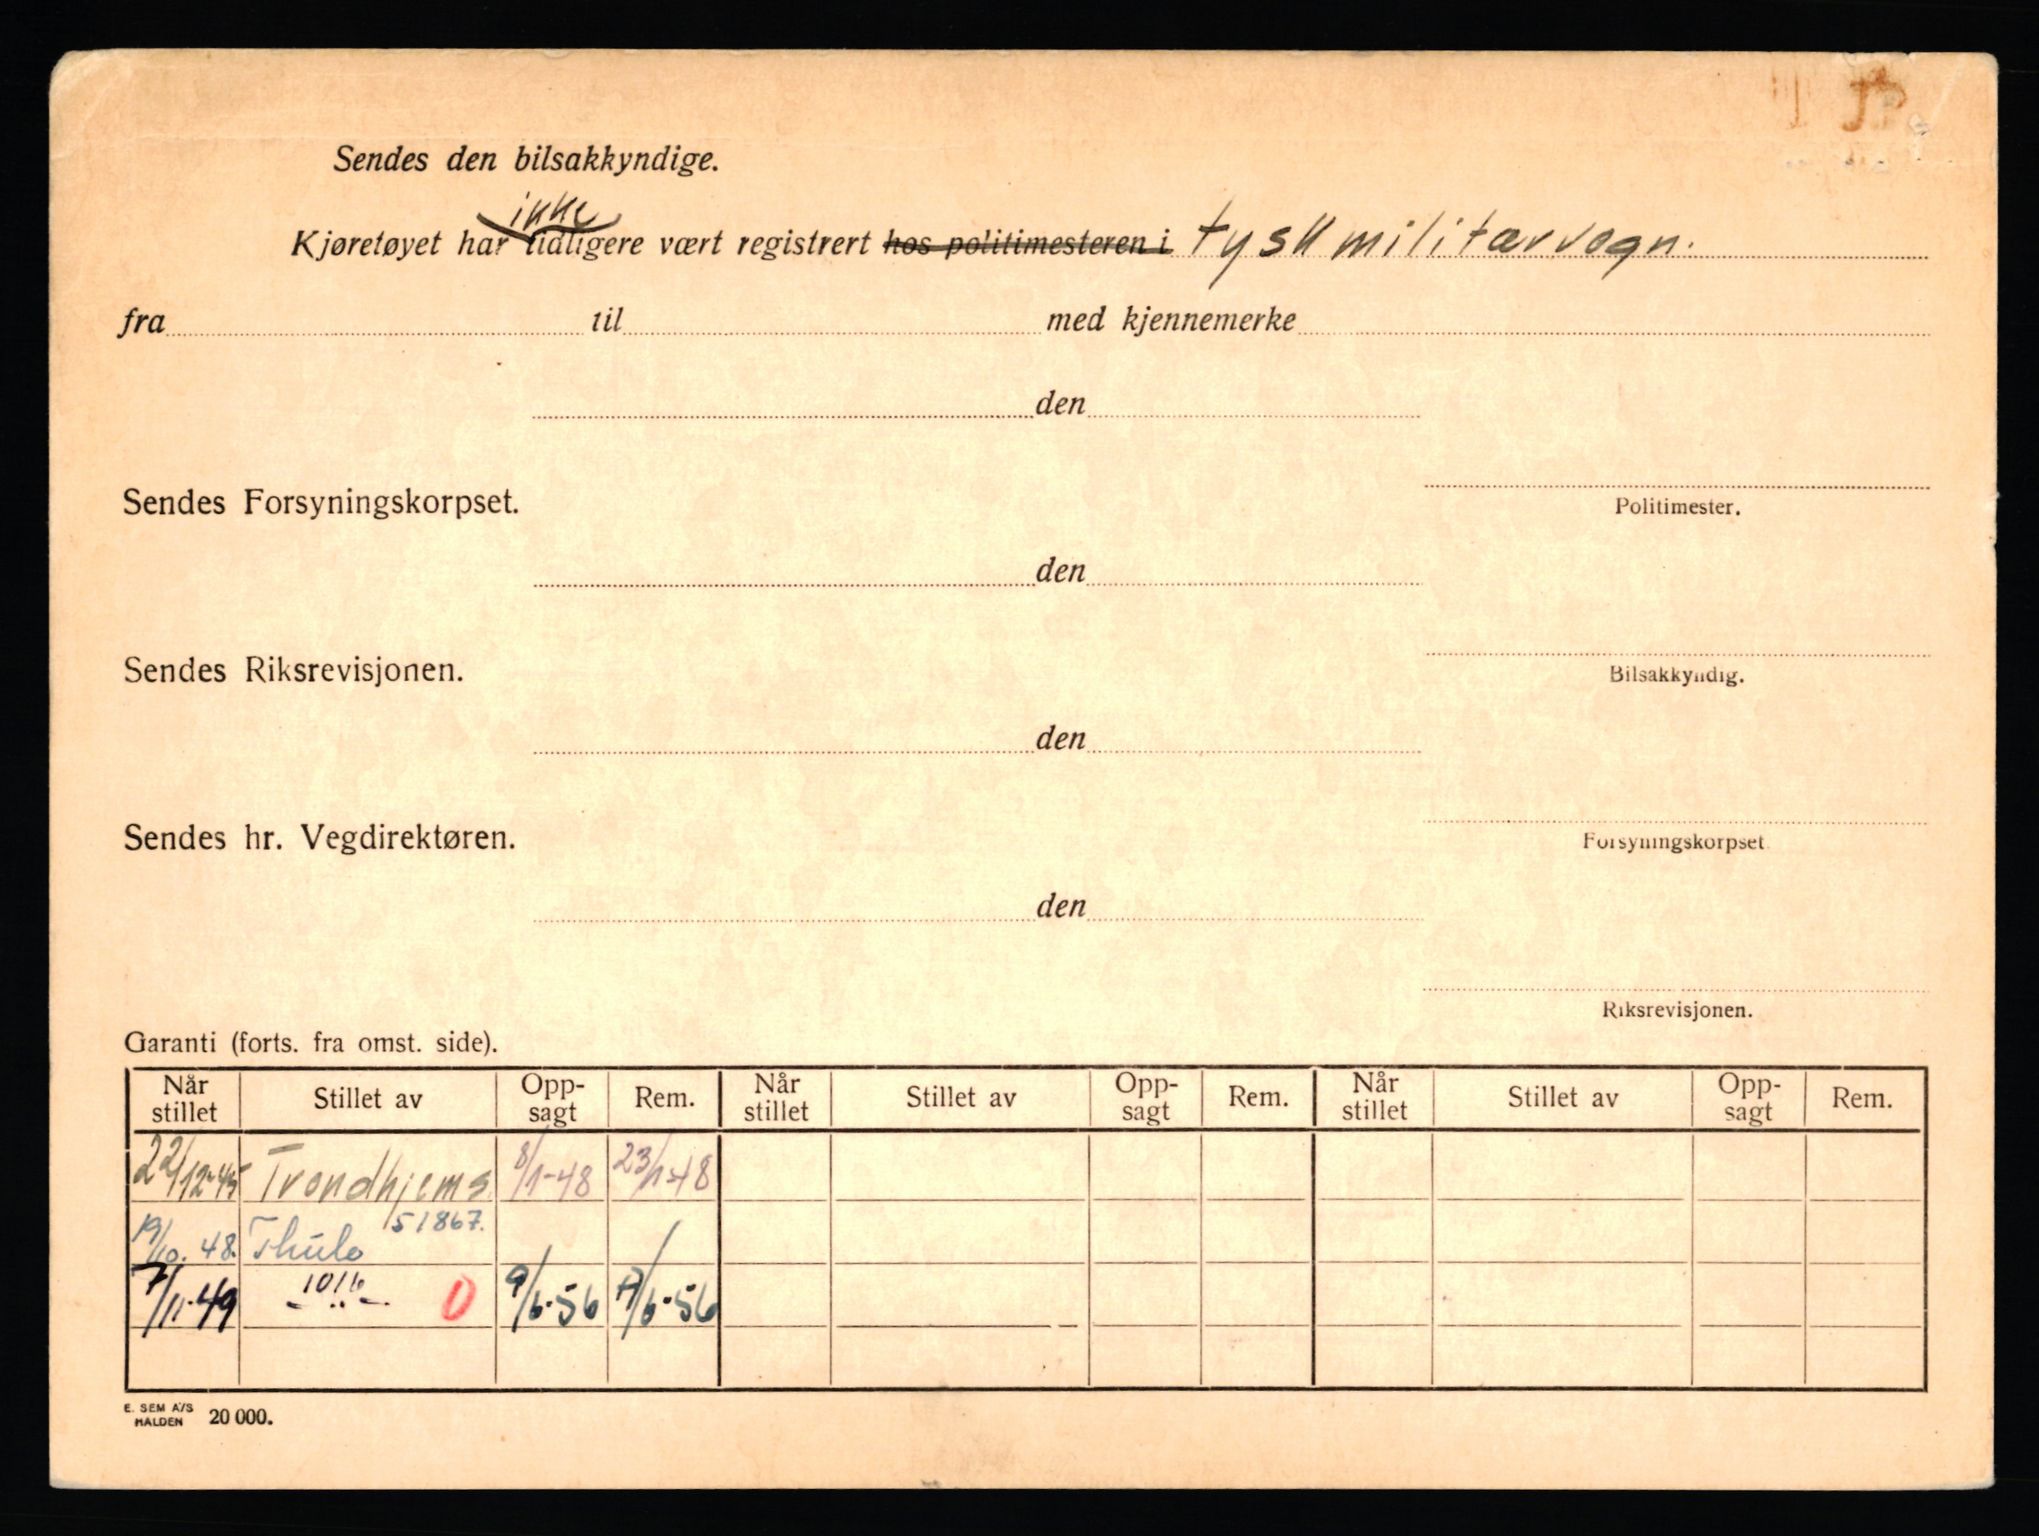 Sendes den bilsakkyndige.
ikke
Kjøretøyet har tidligere vært registrert hos politimesteren i tysk militærvogn.
fra til med kjennemerke
den
Sendes Forsyningskorpset.
Politimester.
den
Sendes Riksrevisjonen.
Bilsakkyndig.
den
Sendes hr. Vegdirektøren.
Forsyningskorpset
den
Riksrevisjonen.
Garanti (forts. fra omst. side).
Når stillet Stillet av Opp-sagt Rem. Når stillet Stillet av Opp-sagt Rem. Når stillet Stillet av Opp-sagt Rem.
22/12-45 Trondhjems 8/1-48 23/1-48
51867.
19/10. 48. Thule
7/11-49 1016 -"- 0 9/6-56 /6-56
E. SEM A/S
HALDEN 20 000.